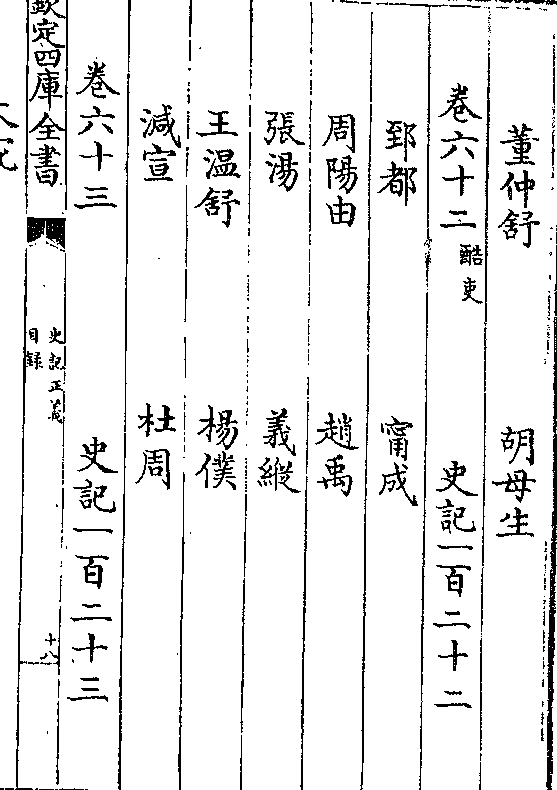 董仲舒 胡母生
卷六十二 酷吏 史記一百二十二
郅都 甯成
周陽由 趙禹
張湯 義縱
王温舒 楊僕
減宣 杜周
卷六十三 史記一百二十三
欽定四庫全書 史記正義 目録 十八